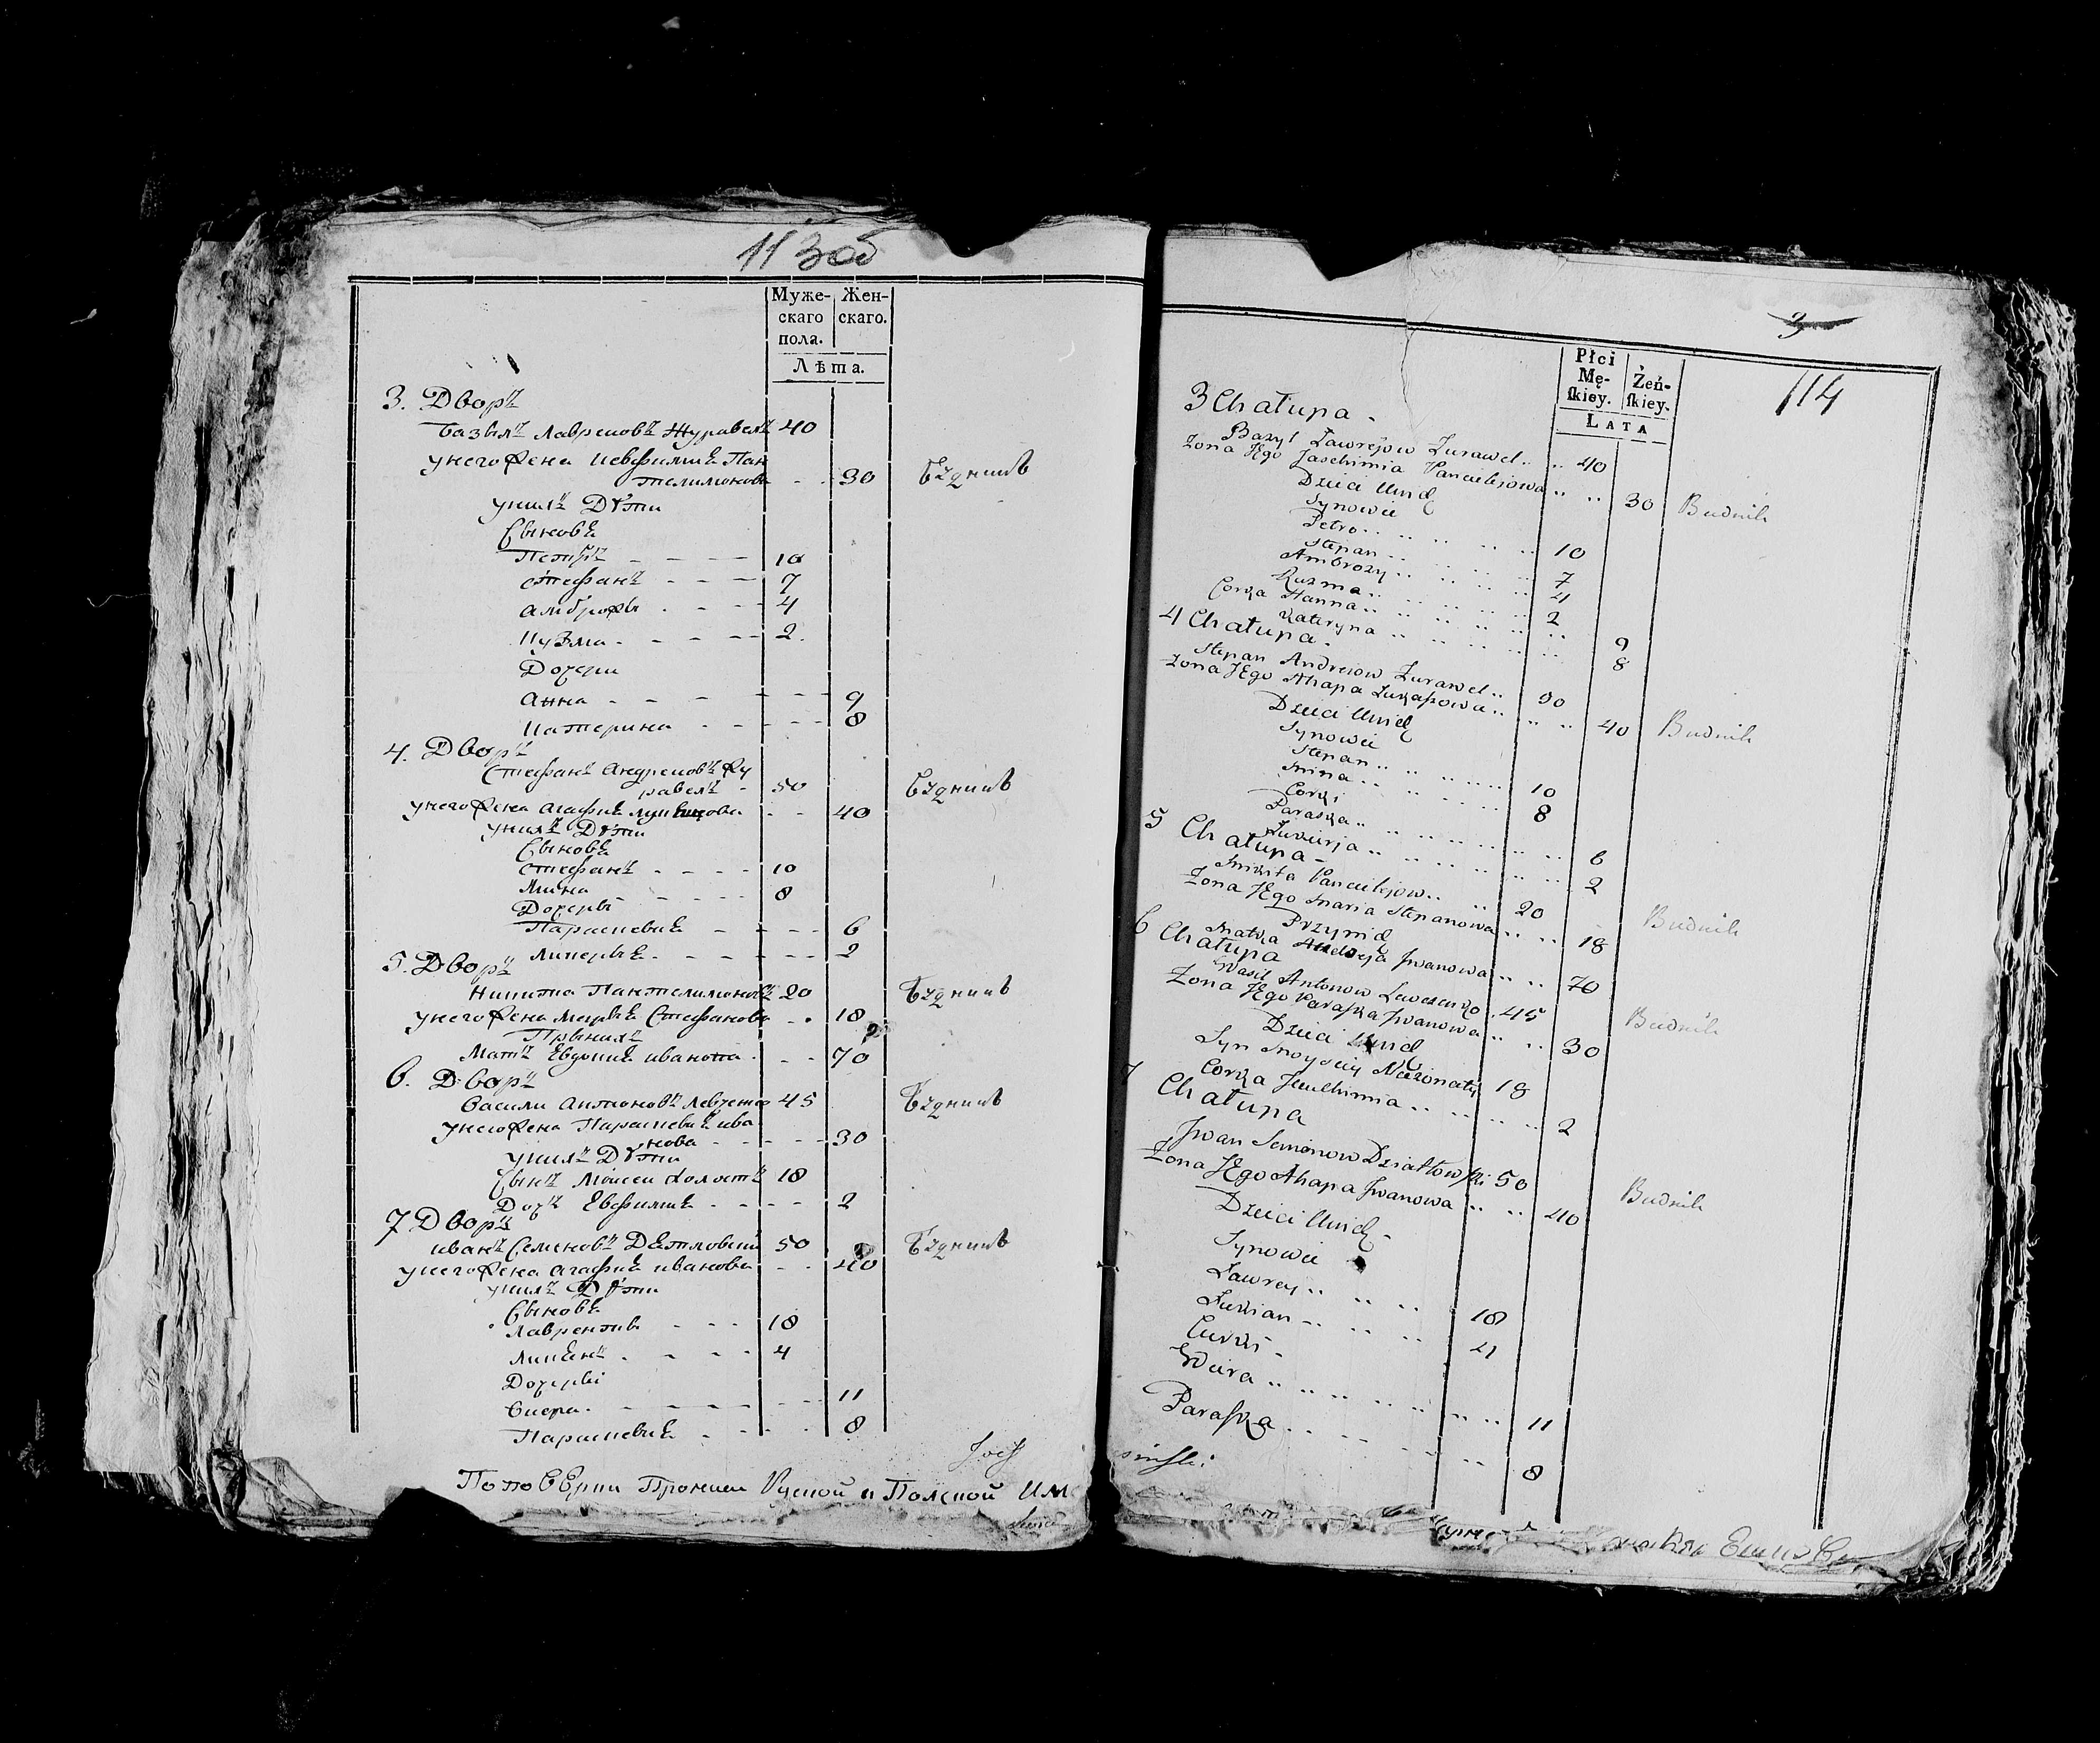 113 об
Муже-
скаго
пола.
Жен-
скаго.
Лѣта.
3. Дворъ
Базылъ Лавреновъ Журавель 40
унего жена Иевфимия Пан
телимонова 30 Будникъ
унихъ Дѣти
Сыновя
Петръ 10
Стефанъ 7
Амброжы 4
Кузма 2
Дочери
Анна 9
Катерина 8
4. Дворъ
Стефанъ Андреиовъ Жу
равель 50 Будникъ
унего жена Агафия 40
унихъ Дѣти
Сыновя
Стефанъ 10
Мина 8
Дочеры
Параскевия 6
Ликерыя 2
5. Дворъ
Никита Пантелимоновъ 20 Будникъ
унего жена Марыя Стефанова 18
Прынихъ
Мать Евдокия ивановa 70
6. Дворъ
Васили Антоновъ Левченко 45 Будникъ
унего жена Параскевия ива
нова 30
унихъ Дѣти
Сынъ Моисеи холостъ 18
Дочъ Евфимия 2
7. Дворъ
иванъ Семеновъ Дятловски 50 Будникъ
унего жена агафия иванова 40
унихъ Дѣти
Сыновя
Лаврентии 18
Лукянъ 4
Дочеры
Виера 11
Параскевия 8
Jozef
По поверки Прочием Руской и Полской
114
Płci
Mę-
ſkiey.
Żeń-
ſkiey.
LATA
3 Chałupa
Bazyl Ławrejow Żurawel 40
Żona Jego Jaschimia Pancilejowa 30 Budnik
Dzieci Unich
Synowie
Petro 10
Stepan 7
Ambrozy 4
Kuzma 2
Corka Hanna 9
Kateryna 8
4 Chałupa
Stepan Andreiow Żurawel 50
Żona JEgo Ahapa Łukaszowa 40 Budnik
Dzieci Unich
Synowie
Stepan 10
Mina 8
Corki
Paraska 6
Łukierja 2
5 Chałupa
Mikita Pancilejow 20 Budnik
Żona JEgo Maria Stepanowa 18
Przynich
Matka Jwanowa 70
6 Chałupa
Wasil Antonow Lewczenko 45 Budnik
Żona JEgo Paraska Jwanowa 30
Dzieci Unich
Syn Moysiey Nieżonaty 18
Corka Jeuchimia 2
7 Chałupa
Jwan Semenow Dziatłowski 50 Budnik
Żona JEgo Ahapa Jwanowa 40
Dzieci Unich
Synowie
Ławrey 18
Łukian 4
Curki
Wiera 11
Paraska 8